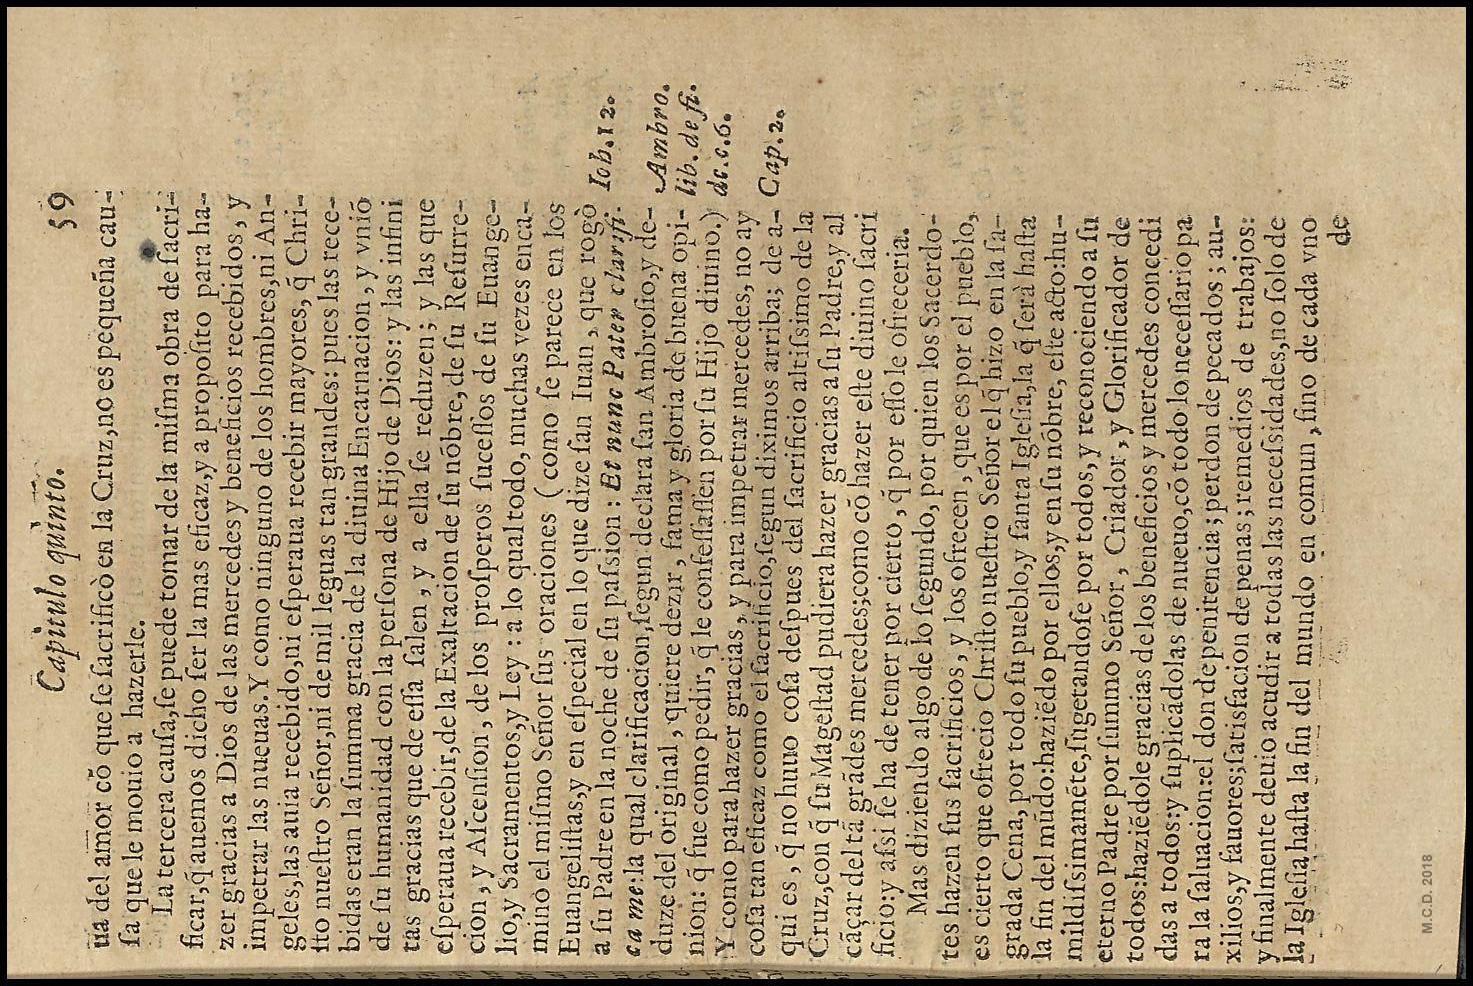 Capitulo quinto. 59
ua del amor cõ que ſe ſacrificò en la Cruz, no es pequeña cau-
ſa que le mouio a hazerle.
La tercera cauſa, ſe puede tomar de la miſma obra de ſacri-
ficar, q̃ auemos dicho ſer la mas eficaz, y a propoſito para ha-
zer gracias a Dios de las mercedes y beneficios recebidos, y
impetrar las nueuas. Y como ninguno de los hombres, ni An-
geles, las auia recebido, ni eſperaua recebir mayores, q̃ Chri-
ſto nueſtro Señor, ni de mil leguas tan grandes: pues las rece-
bidas eran la ſumma gracia de la diuina Encarnacion, y vniõ
de ſu humanidad con la perſona de Hijo de Dios: y las infini
tas gracias que de eſſa ſalen, y a ella ſe reduzen; y las que
eſperaua recebir, de la Exaltacion de ſu nõbre, de ſu Reſurre-
cion, y Aſcenſion, de los proſperos ſuceſſos de ſu Euange-
lio, y Sacramentos, y Ley: a lo qual todo, muchas vezes enca-
mino el miſmo Señor ſus oraciones (como ſe parece en los
Euangeliſtas, y en eſpecial en lo que dize ſan Iuan, que rogò
a ſu Padre en la noche de ſu paſsion: Et nunc Pater clarifi-
ca me: la qual clarificacion, ſegun declara ſan Ambroſio, y de-
duze del original, quiere dezir, fama y gloria de buena opi-
nion: q̃ fue como pedir, q̃ le confeſſaſſen por ſu Hijo diuino.)
Y como para hazer gracias, y para impetrar mercedes, no ay
coſa tan eficaz como el ſacrificio, ſegun diximos arriba; de a-
qui es, q̃ no huuo coſa deſpues del ſacrificio altiſsimo de la
Cruz, con q̃ ſu Mageſtad pudiera hazer gracias a ſu Padre, y al
cãçar del tã grãdes mercedes; como cõ hazer eſte diuino ſacri
ficio: y aſsi ſe ha de tener por cierto, q̃ por eſſo le ofreceria.
Mas diziendo algo de lo ſegundo, por quien los Sacerdo-
tes hazen ſus ſacrificios, y los ofrecen, que es por el pueblo,
es cierto que ofrecio Chriſto nueſtro Señor el q̃ hizo en la ſa-
grada Cena, por todo ſu pueblo, y ſanta Igleſia, la q̃ ſerà haſta
la fin del mũdo: haziẽdo por ellos, y en ſu nõbre, eſte acto: hu-
mildiſsimamẽte, ſugetandoſe por todos, y reconociendo a ſu
eterno Padre por ſummo Señor, Criador, y Glorificador de
todos: haziẽdole gracias de los beneficios y mercedes concedi
das a todos: y ſuplicãdolas de nueuo, cõ todo lo neceſſario pa
ra la ſaluacion: el don de penitencia; perdon de pecados; au-
xilios, y fauores; ſatisfacion de penas; remedios de trabajos:
y finalmente deuio acudir a todas las neceſsidades, no ſolo de
la Igleſia haſta la fin del mundo en comun, ſino de cada vno
de
Iob. 12.
Ambro.
lib. de fi.
de. c. 6.
Cap. 2.
M.C.D. 2018